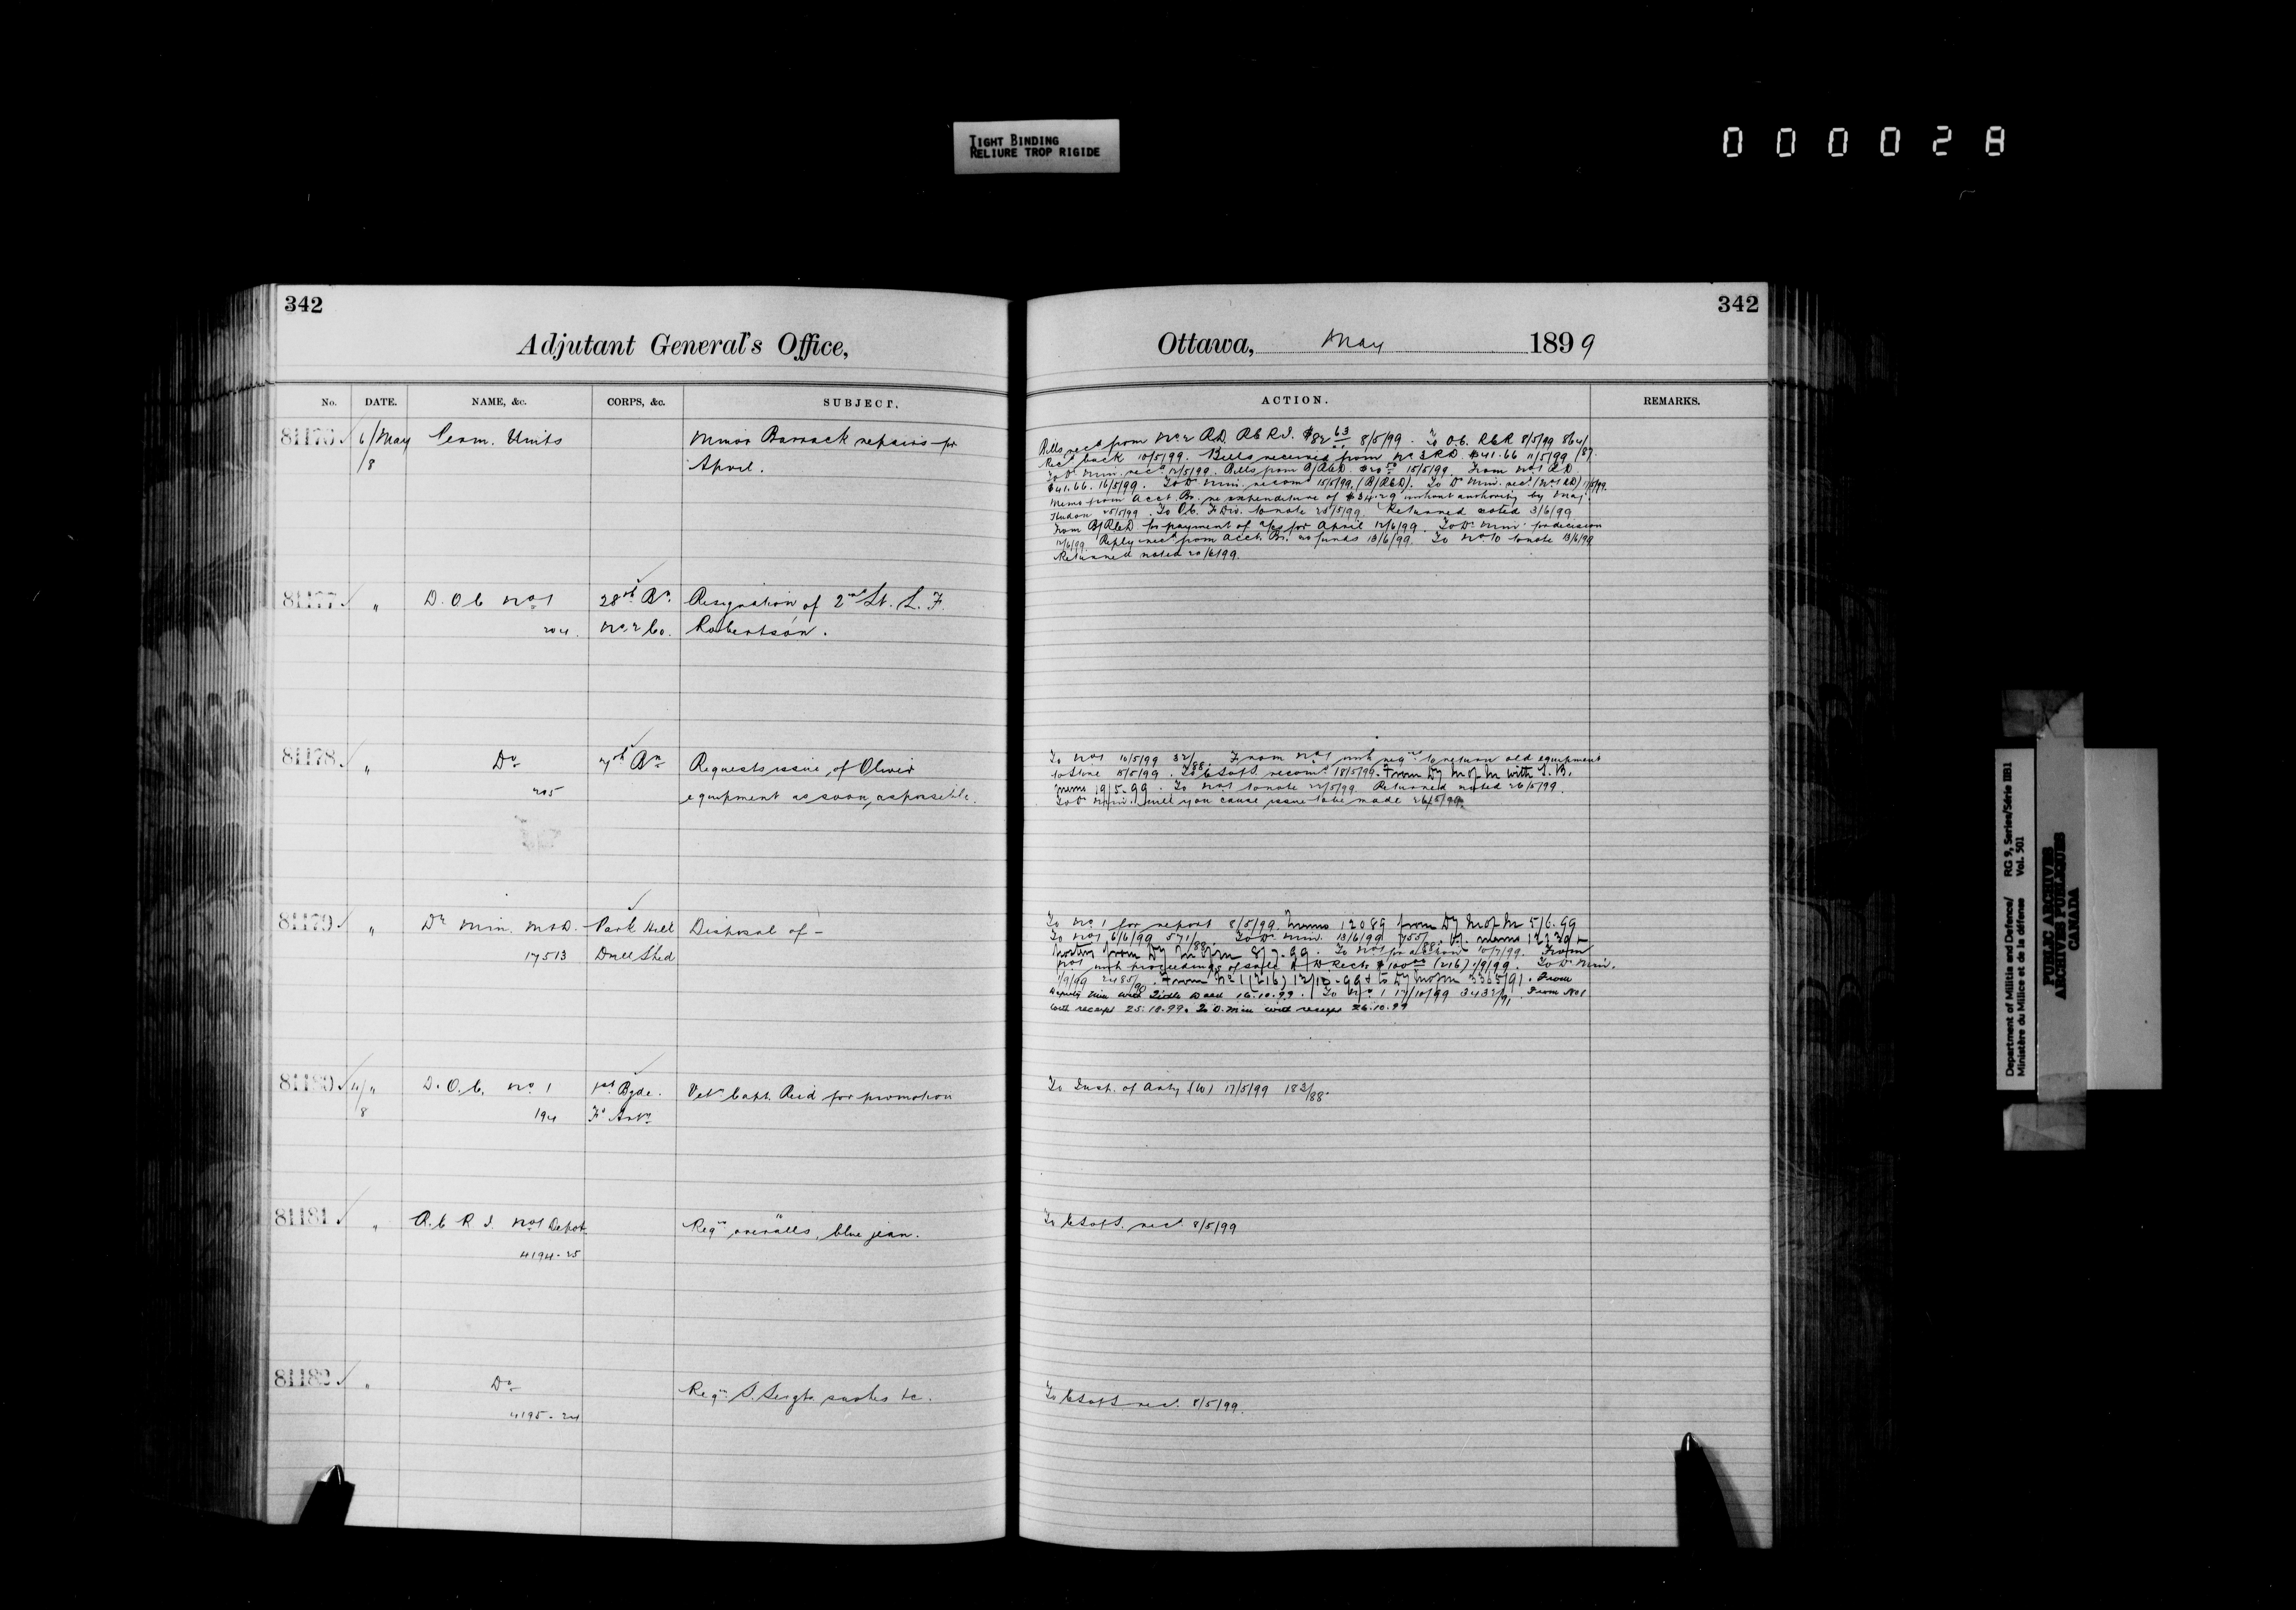 TIGHT BINDING
RELIURE TROP RIGIDE
000028
342
Adjutant General's Office,
No. DATE. NAME, &c. CORPS, &c. SUBJECT.
81176 6/May Perm. Units Minor Barrack repairs for
/8 April.
81177 " D.O.C. No. 1 28th Bn. Resignation of 2nd Lt. L. F.
204. No. 2 Co. Robertson.
81178 " Do 7th Bn Requests issue of Oliver
205 equipment as soon as possible.
81179 " Dy. Min. M&D. Park Hill Disposal of —
17513 Drill Shed
81180 4/" D.O.C. No. 1 1st Bgde. Vety. Capt. Reid for promotion
/8 194 Fd Arty
81181 " R.C.R.I. No. 1 Depot Reqn overalls, blue jean.
4194-25
81182 " Do Reqn S. Sergts sashes &c.
4195-24
342
Ottawa, May 1899
ACTION. REMARKS.
Bills recd from No. 2 R.D. R.C.R.I. $82 63 8/5/99. To O.C. RCR 8/5/99
Recd back 10/5/99. Bills received from No. 3 RD. $41.66 11/5/99
To Dr. Min. recd 12/5/99. Bills from 15/5/99. From No. 1 RD
$41.66. 16/5/99. To Dr. Min. recomd 15/5/99. To Dr. Min. recd (No. 1 RD)
Memo from Acct. Br. re expenditure of $34.29 without authority by Maj.
Hudon 25/5/99. To Ob. F Div. to note 25/5/99. Returned noted 3/6/99
From for payment of a/cs for April 12/6/99. To Dr. Min. for decision
12/6/99 Reply recd from Acct. Br. no funds 13/6/99. To No. 10 to note 13/6/99
Returned noted 20/6/99.
To No. 1 10/5/99 32/88. From No. 1 with reqn to return old equipment
to Store 15/5/99. To C.S. of S. recomd 18/5/99. From Dy M of M with S.B.
memo 19/5-99. To No. 1 to note 22/5/99 Returned noted 26/5/99.
To Dr. Min. will you cause issue to be made 26/5/99.
To No. 1 for report 8/5/99. Memo 12089 from Dy M of M 5/6.99
To No. 1 6/6/99 571/88. To Dr. Min. 13/6/99 755/88. memo
from Dy M of M 8/7.99. To No. 1 for action 10/7/99. From
No. 1 with proceedings of sale & D. Rect. $100 00 (216) 1/9/99. To Dr. Min.
1/9/99 2485/90. From No 1 (216) 12/10-99 & to Dy M of M 3365/91. From
Deputy Min with Deed 16.10.99. To No. 1 17/10/99 3432/91. From No 1
with receipt 25.10.99. To D. Min with receipt 26.10.99
To Insp. of Arty (W) 17/5/99 182/88.
To C.S. of S. recd. 8/5/99
To C.S. of S. recd. 8/5/99.
Department of Militia and Defence/ RG 9, Series/Série IIB1
Ministère du Milice et de la défense Vol. 501
PUBLIC ARCHIVES
ARCHIVES PUBLIQUES
CANADA